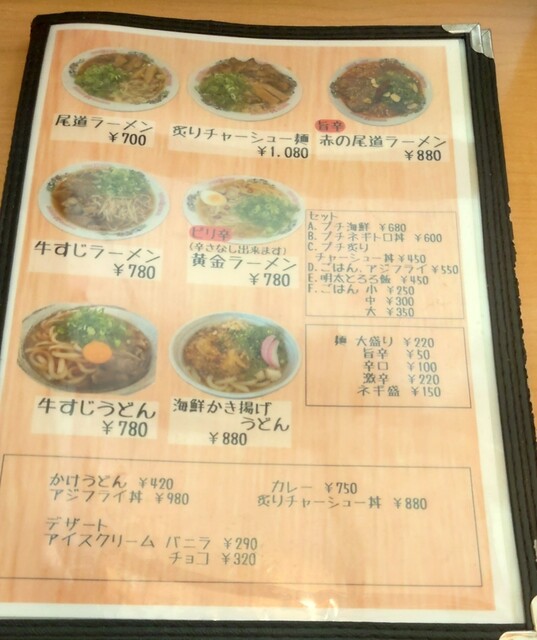 尾道ラーメン
￥700
炙りチャーシュー麺
￥1.080
旨辛
赤の尾道ラーメン
￥880
牛すじラーメン
￥780
ピリ辛
(辛さなし出来ます)
黄金ラーメン
￥780
セット
A.プチ海鮮 ￥680
B.プチネギトロ丼 ￥600
C.プチ炙り
チャーシュー丼 ￥450
D.ごはん、アジフライ￥550
E.明太とろろ飯 ￥450
F.ごはん 小 ￥250
中 ￥300
大 ￥350
牛すじうどん
￥780
海鮮かき揚げ
うどん
￥880
麺 大盛り ￥220
旨辛 ￥50
辛口 ￥100
激辛 ￥220
ネギ盛 ￥150
かけうどん ￥420
アジフライ丼 ￥980
カレー ￥750
炙りチャーシュー丼 ￥880
デザート
アイスクリーム バニラ ￥290
チョコ ￥320